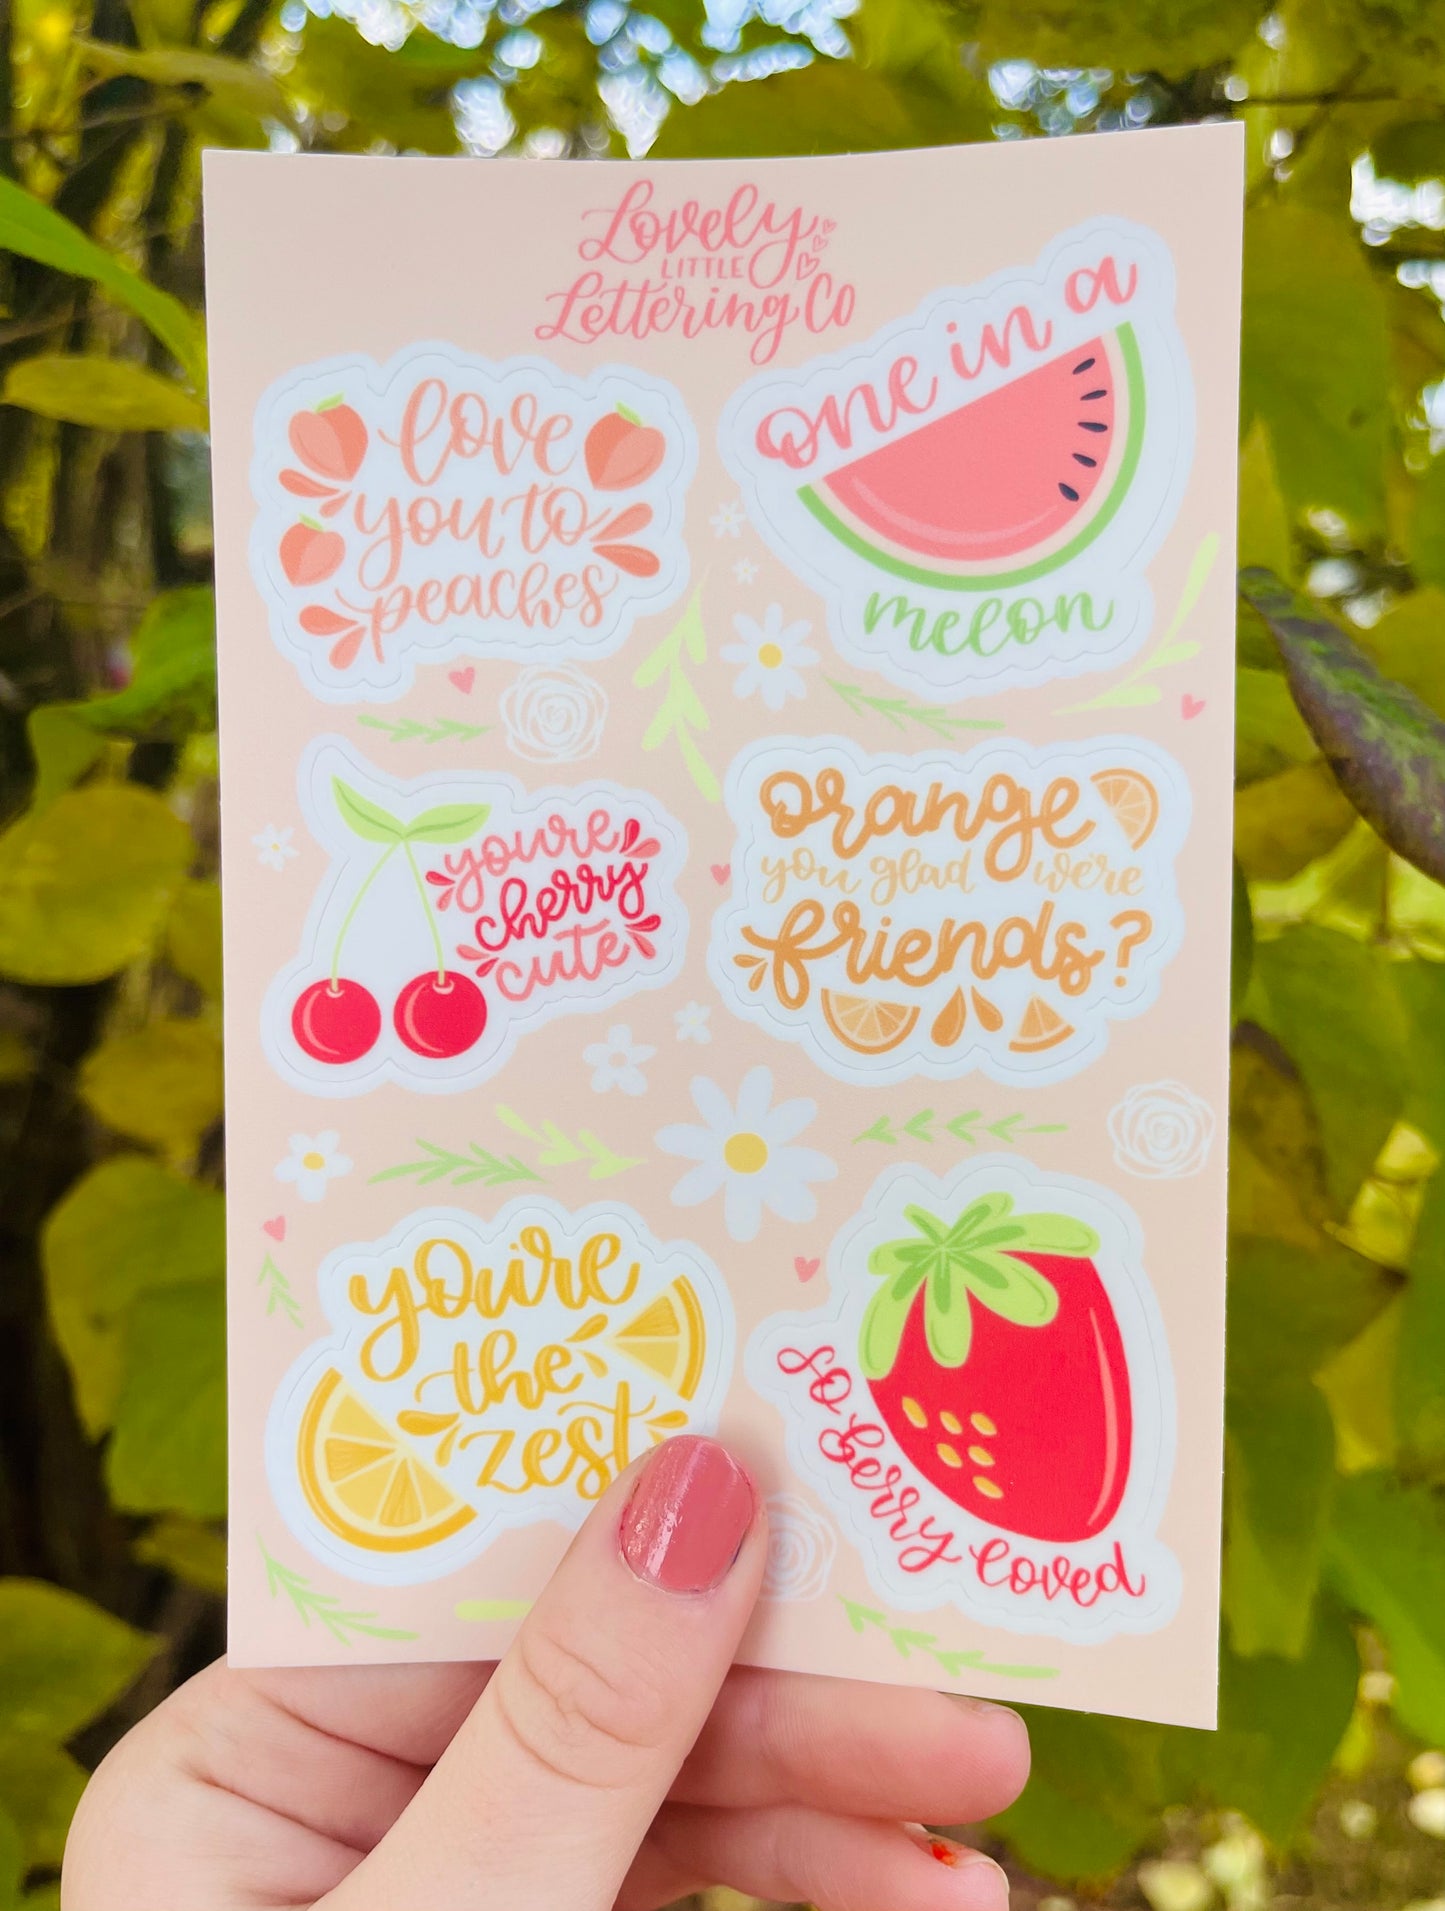 Lovely
LITTLE
Lettering Co
love
you to
peaches
one in a
melon
you're
cherry
cute
orange
you glad we're
friends?
you're
the
zest
so berry loved